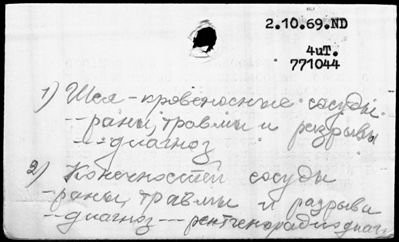 2.10.69.ND
4иT.
771044
1) Шея - кровеносные сосуды
-- раны, травмы и разрывы
-- диагноз
2) Конечностей сосуды
- раны, травмы и разрывы
-- диагноз --- рентгенорадиодиагн